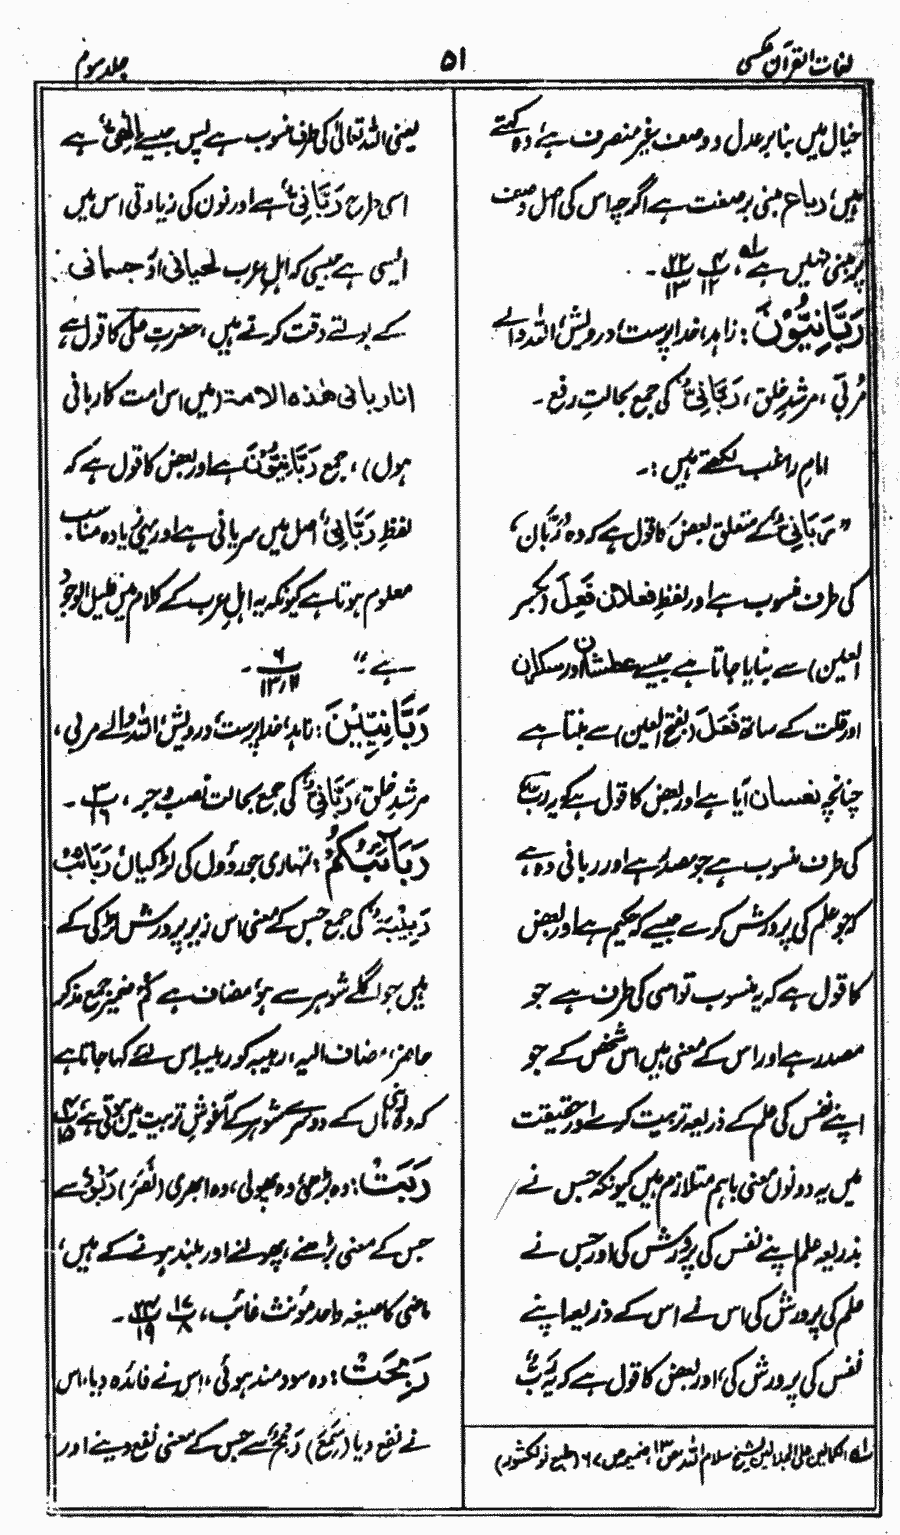 لغات القرآن عکسی
۵۱
جلد سوم
خیال میں بنا بر عدل و وصف غیر منصرف ہے، وہ کہتے
ہیں، رباع مبنی بر صفت ہے اگرچہ اس کی اصل وصف
پر مبنی نہیں ہے لہ، ۴/۱۲ ۲۲/۱۳ ۔
رَبَّانِیُّوْنَ : زاہد، خدا پرست، درویش، اللہ والے
مُربّی، مرشدِ خلق، رَبَّانِیٌّ کی جمع بحالتِ رفع ۔
امام راغب لکھتے ہیں :۔
”رَبَّانِیٌّ کے متعلق بعض کا قول ہے کہ وہ رَبَّان
کی طرف منسوب ہے اور لفظِ فعلان فَعِلَ (بکسر
العین) سے بنایا جاتا ہے جیسے عطشان اور سکران
اور قلت کے ساتھ فَعَلَ (بفتح العین) سے بنتا ہے
چنانچہ نعسان آیا ہے اور بعض کا قول ہے کہ یہ رب
کی طرف منسوب ہے جو مصدر ہے اور ربانی وہ ہے
کہ جو علم کی پرورش کرے جیسے کہ حکیم ہے اور بعض
کا قول ہے کہ یہ منسوب تو اسی کی طرف ہے جو
مصدر ہے اور اس کے معنی ہیں اس شخص کے جو
اپنے نفس کی علم کے ذریعہ تربیت کرے اور حقیقت
میں یہ دونوں معنی باہم متلازم ہیں کیونکہ جس نے
بذریعہ علم اپنے نفس کی پرورش کی اور جس نے
علم کی پرورش کی اس نے اس کے ذریعہ اپنے
نفس کی پرورش کی، اور بعض کا قول ہے کہ یہ رَبٌّ
لہ الکمالین علی الجلالین للشیخ سلام اللہ ص ۱۳ ضمیمہ ص ۶۷ (طبع نولکشور)
یعنی اللہ تعالیٰ کی طرف منسوب ہے پس جیسے اِلٰھِیٌّ ہے
اسی طرح رَبَّانِیٌّ ہے اور نون کی زیادتی اس میں
ایسی ہے جیسی کہ اہل عرب لحیانی اور جسمانی
کے بولتے وقت کرتے ہیں، حضرت علی کا قول ہے
انا ربانی ھٰذہ الامۃ (میں اس امت کا ربانی
ہوں)، جمع رَبَّانِیُّوْنَ ہے اور بعض کا قول ہے کہ
لفظِ رَبَّانِیّ اصل میں سریانی ہے اور یہی زیادہ مناسب
معلوم ہوتا ہے کیونکہ یہ اہل عرب کے کلام میں قلیل الوجود
ہے“ ۶/۱۳،۴ ۔
رَبَّانِیّٖنَ : زاہد، خدا پرست، درویش، اللہ والے مربی،
مرشدِ خلق، رَبَّانِیٌّ کی جمع بحالت نصب و جر، ۳/۱۶ ۔
رَبَائِبُکُمْ : تمہاری جوروؤں کی لڑکیاں رَبَائِبُ
رَبِیْبَۃٌ کی جمع جس کے معنی اس زیر پرورش لڑکی کے
ہیں جو اگلے شوہر سے ہو، مضاف ہے کُمْ ضمیر جمع مذکر
حاضر، مضاف الیہ، ربیبہ کو ربیبہ اس لئے کہا جاتا ہے
کہ وہ اپنی ماں کے دوسرے شوہر کے آغوش تربیت میں ہوتی ہے، ۴/۱۵
رَبَتْ : وہ بڑھی، وہ پھولی، وہ ابھری (نَصَرَ) رَبْوٌ سے
جس کے معنی بڑھنے، پھولنے اور بلند ہونے کے ہیں،
ماضی کا صیغہ واحد مؤنث غائب، ۱۷/۸ ۲۴/۱۹ ۔
رَبِحَتْ : وہ سود مند ہوئی، اس نے فائدہ دیا، اس
نے نفع دیا (سَمِعَ) رِبْحٌ سے جس کے معنی نفع دینے اور